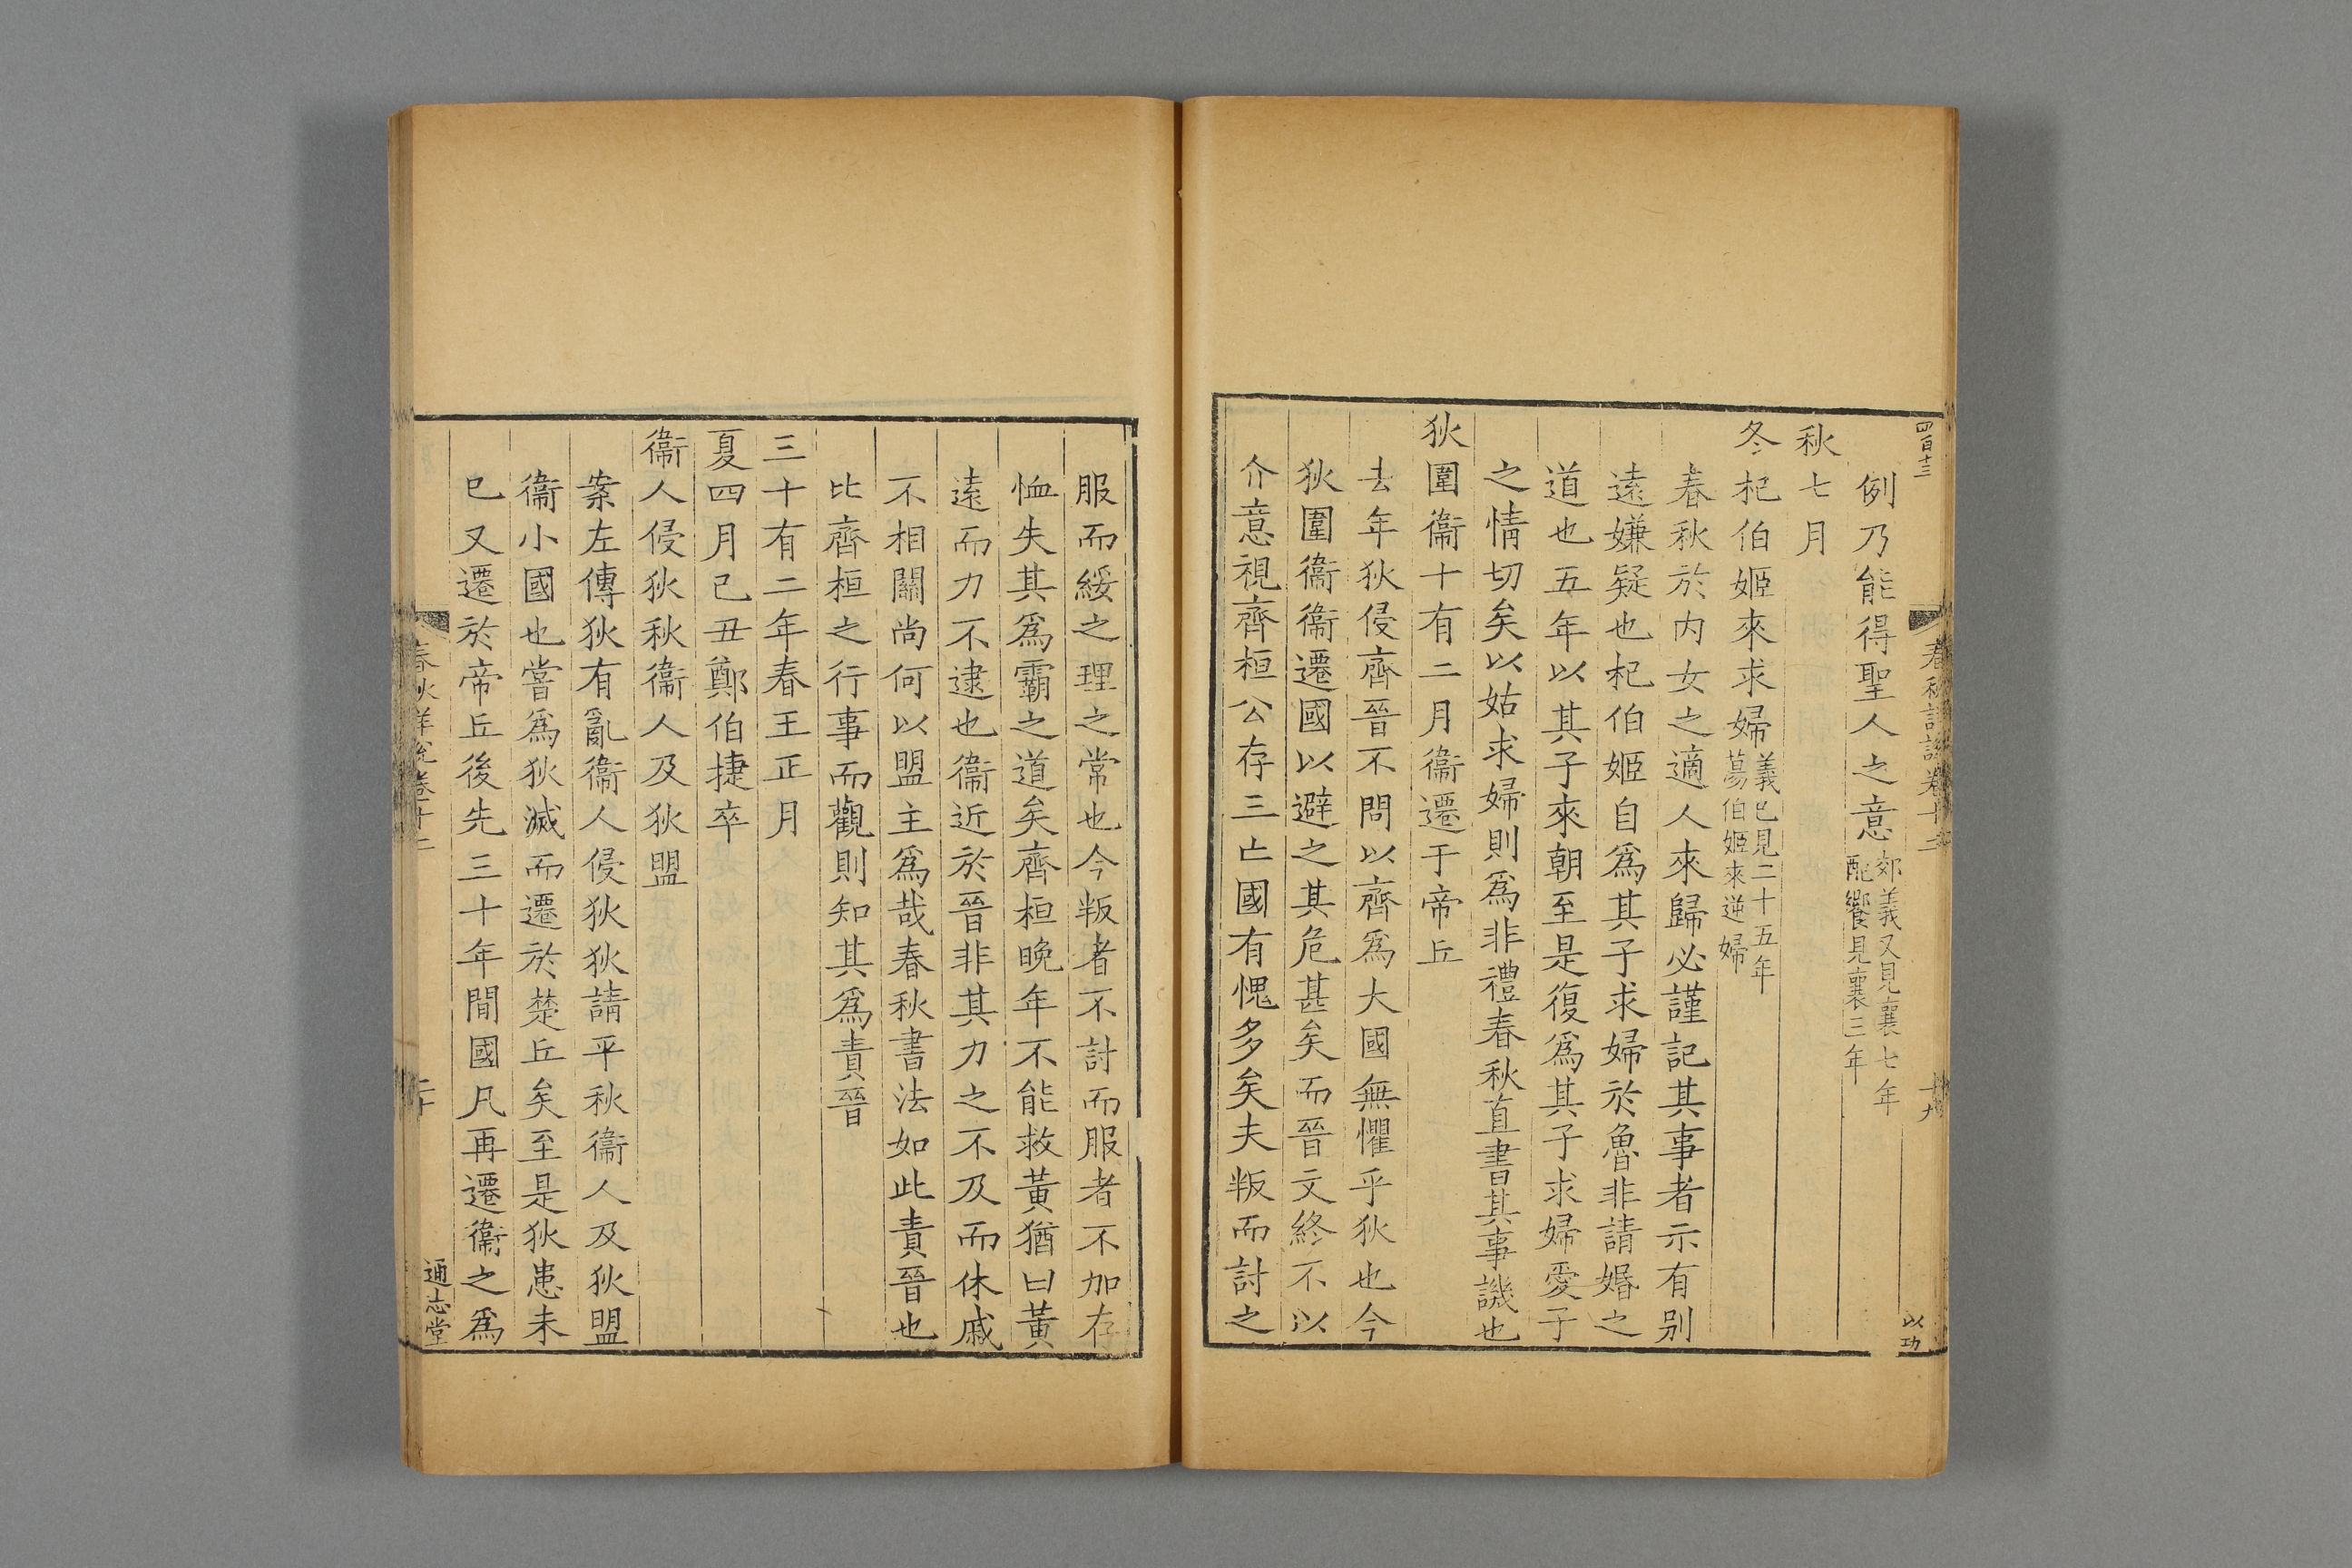 四百十三
春秋詳說卷十二
十九
以功
例乃能得聖人之意郊義又見襄七年
配饗見襄三年
秋七月
冬杞伯姬來求婦義已見二十五年
蕩伯姬來逆婦
春秋於内女之適人來歸必謹記其事者示有别
遠嫌疑也杞伯姬自爲其子求婦於魯非請婚之
道也五年以其子來朝至是復爲其子求婦愛子
之情切矣以姑求婦則爲非禮春秋直書其事譏也
狄圍衞十有二月衞遷于帝丘
去年狄侵齊晉不問以齊爲大國無懼乎狄也今
狄圍衞衞遷國以避之其危甚矣而晉文終不以
介意視齊桓公存三亡國有愧多矣夫叛而討之
服而綏之理之常也今叛者不討而服者不加存
恤失其爲霸之道矣齊桓晚年不能救黄猶曰黄
遠而力不逮也衞近於晉非其力之不及而休戚
不相關尚何以盟主爲哉春秋書法如此責晉也
比齊桓之行事而觀則知其爲責晉
三十有二年春王正月
夏四月己丑鄭伯捷卒
衞人侵狄秋衞人及狄盟
案左傳狄有亂衞人侵狄狄請平秋衞人及狄盟
衞小國也嘗爲狄滅而遷於楚丘矣至是狄患未
已又遷於帝丘後先三十年間國凡再遷衞之爲
春秋詳說卷十二
二十
通志堂